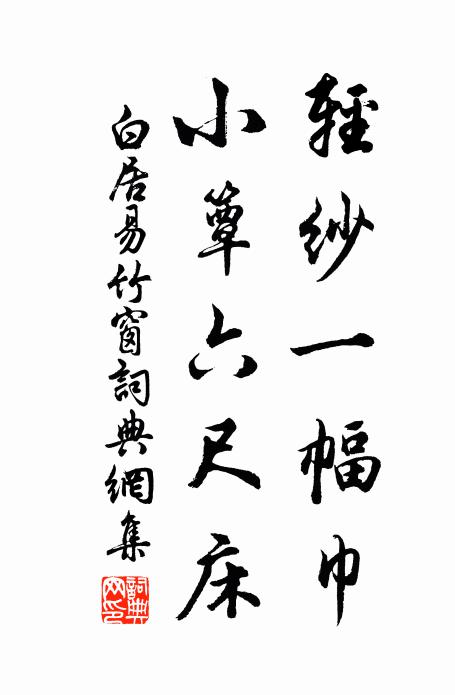 輕紗一幅巾
小簟六尺床
白居易竹窗詞典網集
詞典網印